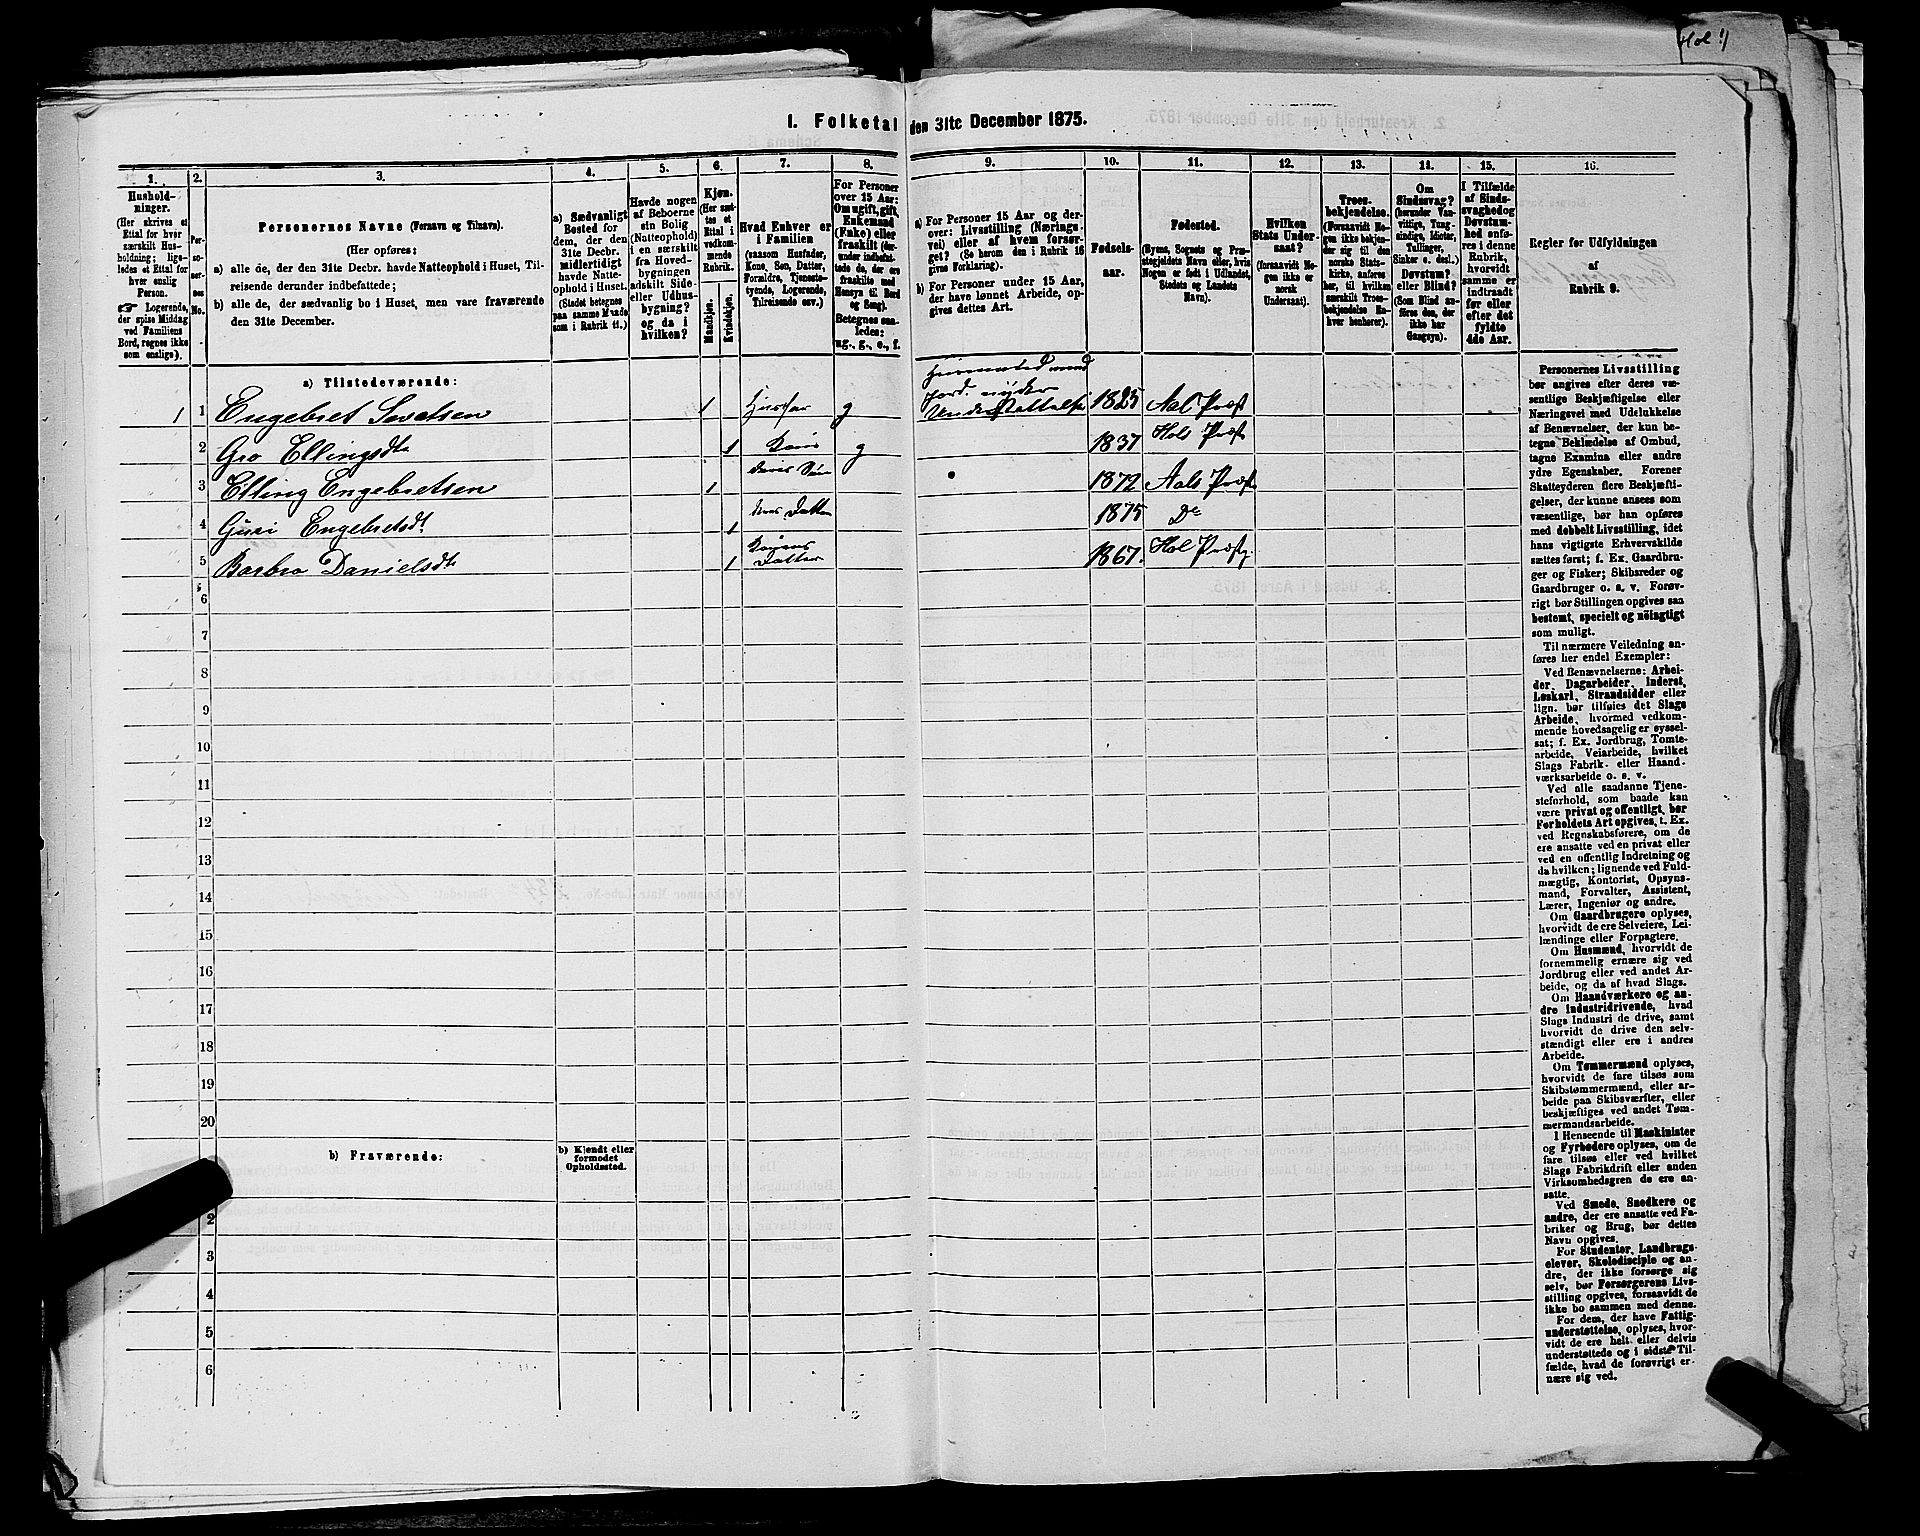 Hol
I. Folketal den 31te December 1875.
1.
2.
3.
4.
5.
6.
7.
8.
9.
10.
11.
12.
13.
14.
15.
16.
Hushold-
ninger.
(Her skrives et
Ettal for hver
særskilt Hus-
holdning; lige-
ledes et Ettal for
hver enslig
Person.
☞ Logerende,
der spise Middag
ved Familiens
Bord, regnes ikke
som enslige).
Per-
so-
ner-
nes
No.
Personernes Navne (Fornavn og Tilnavn).
(Her opføres:
a) alle de, der den 31te Decbr. havde Natteophold i Huset, Til-
reisende derunder indbefattede;
b) alle de, der sædvanlig bo i Huset, men vare fraværende
den 31te December.
a) Sædvanligt
Bosted for
dem, der den
31te Decbr.
midlertidigt
havde Natte-
ophold i Huset.
(Stedet betegnes
paa samme Maade
som i Rubrik 11.)
Havde nogen
af Beboerne
sin Bolig
(Natteophold)
i en særskilt
fra Hoved-
bygningen
adskilt Side-
eller Udhus-
bygning?
og da i
hvilken?
Kjøn.
(Her sæt-
tes et
Ettal i
vedkom-
mende
Rubrik.
Mandkjøn.
Kvindekjøn.
Hvad Enhver er
i Familien
(saasom Husfader,
Kone, Søn, Datter,
Forældre, Tjeneste-
tyende, Logerende,
Tilreisende osv.)
For Personer
over 15 Aar:
Om ugift, gift,
Enkemand
(Enke) eller
fraskilt (der-
under indbefat-
tede de, der ere
fraskilte med
Hensyn til Bord
og Seng).
Betegnes saa-
ledes:
ug., g., e., f.
a) For Personer 15 Aar og der-
over: Livsstilling (Nærings-
vei) eller af hvem forsør-
get? (Se herom den i Rubrik 16
givne Forklaring).
b) For Personer under 15 Aar,
der have lønnet Arbeide, op-
gives dettes Art.
Fødsels-
aar.
Fødested.
(Byens, Sognets og Præ-
stegjeldets Navn eller, hvis
Nogen er født i Udlandet,
Stedets og Landets
Navn).
Hvilken
Stats Under-
saat?
(forsaavidt No-
gen ikke er
norsk
Undersaat).
Troes-
bekjendelse.
(Forsaavidt No-
gen ikke bekjen-
der sig til den
norske Stats-
kirke, anføres
her, til hvilken
særskilt Troes-
bekjendelse En-
hver henhører).
Om
Sindssvag?
(herunder Van-
vittige, Tung-
sindige, Idioter,
Tullinger,
Sinker o. desl.)
Døvstum?
eller Blind?
(Som Blind an-
føres den, der
ikke har
Gangsyn).
I Tilfælde
af Sinds-
svaghed og
Døvstum-
hed anfø-
res i denne
Rubrik,
hvorvidt
samme er
indtraadt
før eller
efter det
fyldte
4de Aar.
Regler for Udfyldningen
af
Rubrik 9.
a) Tilstedeværende:
Huusmand med
jord. nyder
1 1 Engebret Sevatsen 1 Husfar g Understøttelse 1825 Aal Præst
2 Gro Ellingsdt 1 Kone g 1837 Hols Præst
3 Elling Engebretsen 1 deres Søn 1872 Aals Præst
4 Guri Engebretsdt 1 deres Datter 1875 Do
5 Barbro Danielsdt 1 Konens Datter 1867. Hol Præstg
6
7
8
9
10
11
12
13
14
15
16
17
18
19
20
b) Fraværende:
b) Kjendt eller
formodet
Opholdssted.
2
3
4
5
6
Personernes Livsstilling
bør angives efter deres væ-
sentlige Beskjæftigelse eller
Næringsvei med Udelukkelse
af Benævnelser, der kun be-
tegne Beklædelse af Ombud,
tagne Examina eller andre
ydre Egenskaber. Forener
Skatteyderen flere Beskjæfti-
gelser, der kunne ansees som
væsentlige, bør han opføres
med dobbelt Livsstilling, idet
hans vigtigste Erhvervskilde
sættes først; f. Ex. Gaardbru-
ger og Fisker; Skibsreder og
Gaardbruger o. s. v. Forøv-
rigt bør Stillingen opgives saa
bestemt, specielt og nöiagtigt
som muligt.
Til nærmere Veiledning an-
føres her endel Exempler:
Ved Benævnelserne: Arbei-
der, Dagarbeider, Inderst,
Løskarl, Strandsidder eller
lign. bør tilføies det Slags
Arbeide, hvormed vedkom-
mende hovedsagelig er syssel-
sat; f. Ex. Jordbrug, Tomte-
arbeide, Veiarbeide, hvilket
Slags Fabrik- eller Haand-
værksarbeide o. s. v.
Ved alle saadanne Tjene-
steforhold, som baade kan
være privat og offentligt, bør
Forholdets Art opgives, t. Ex.
ved Regnskabsførere, om de
ere ansatte ved en privat eller
ved en offentlig Indretning og
da hvilken; lignende ved Fuld-
mægtig, Kontorist, Opsyns-
mand, Forvalter, Assistent,
Lærer, Ingeniør og andre.
Om Gaardbrugere oplyses,
hvorvidt de ere Selveiere, Lei-
lændinge eller Forpagtere.
Om Husmænd, hvorvidt de
fornemmelig ernære sig ved
Jordbrug eller ved andet Ar-
beide, og da af hvad Slags.
Om Haandværkere og an-
dre Industridrivende, hvad
Slags Industri de drive, samt
hvorvidt de drive den selv-
stændigt eller ere i andres
Arbeide.
Om Tømmermænd oplyses,
hvorvidt de fare tilsøs som
Skibstømmermænd, eller ar-
beide paa Skibsværfter, eller
beskjæftiges ved andet Tøm-
mermandsarbeide.
I Henseende til Maskinister
og Fyrbødere oplyses, om de
fare tilsøs eller ved hvilket
Slags Fabrikdrift eller anden
Virksomhedsgren de ere an-
satte.
Ved Smede, Snedkere og
andre, der ere ansatte ved Fa-
briker og Brug, bør dettes
Navn opgives.
For Studenter, Landbrugs-
elever, Skoledisciple og an-
dre, der ikke forsørge sig
selv, bør Forsørgerens Livs-
stilling opgives, forsaavidt de
ikke bo sammen med denne.
For dem, der have Fattig-
understøttelse, oplyses, hvor-
vidt de ere helt eller delvis
understøttede og i sidste Til-
fælde, hvad de forøvrigt er-
nære sig ved.